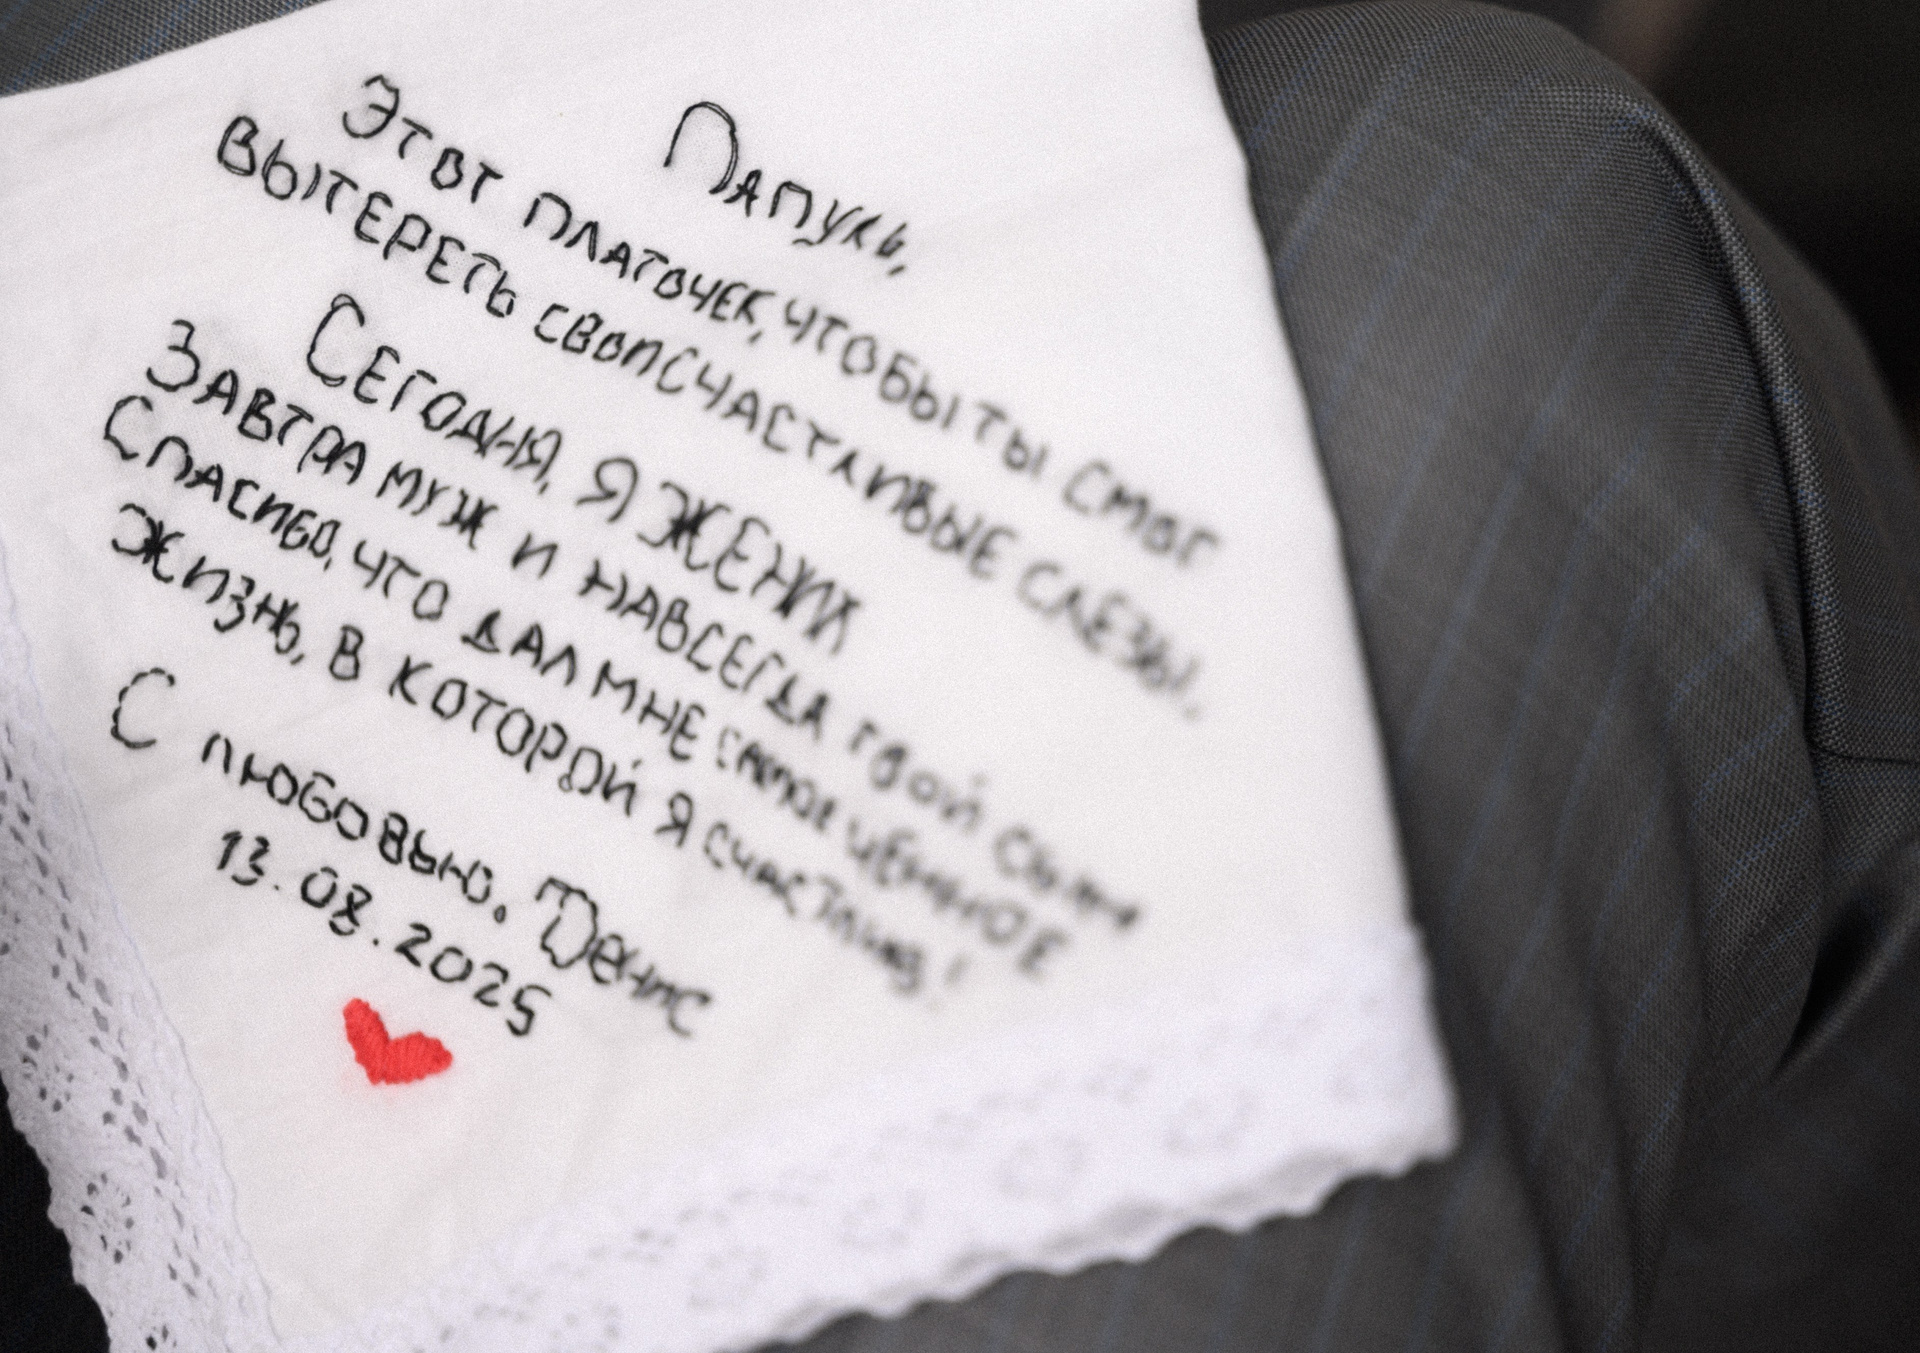 Папуль,
Этот платочек, чтобы ты смог
вытереть свои счастливые слёзы.
Сегодня, я жених
Завтра муж и навсегда твой сын
Спасибо, что дал мне самое ценное
жизнь, в которой я счастлив!
С любовью. Денис
13.08.2025